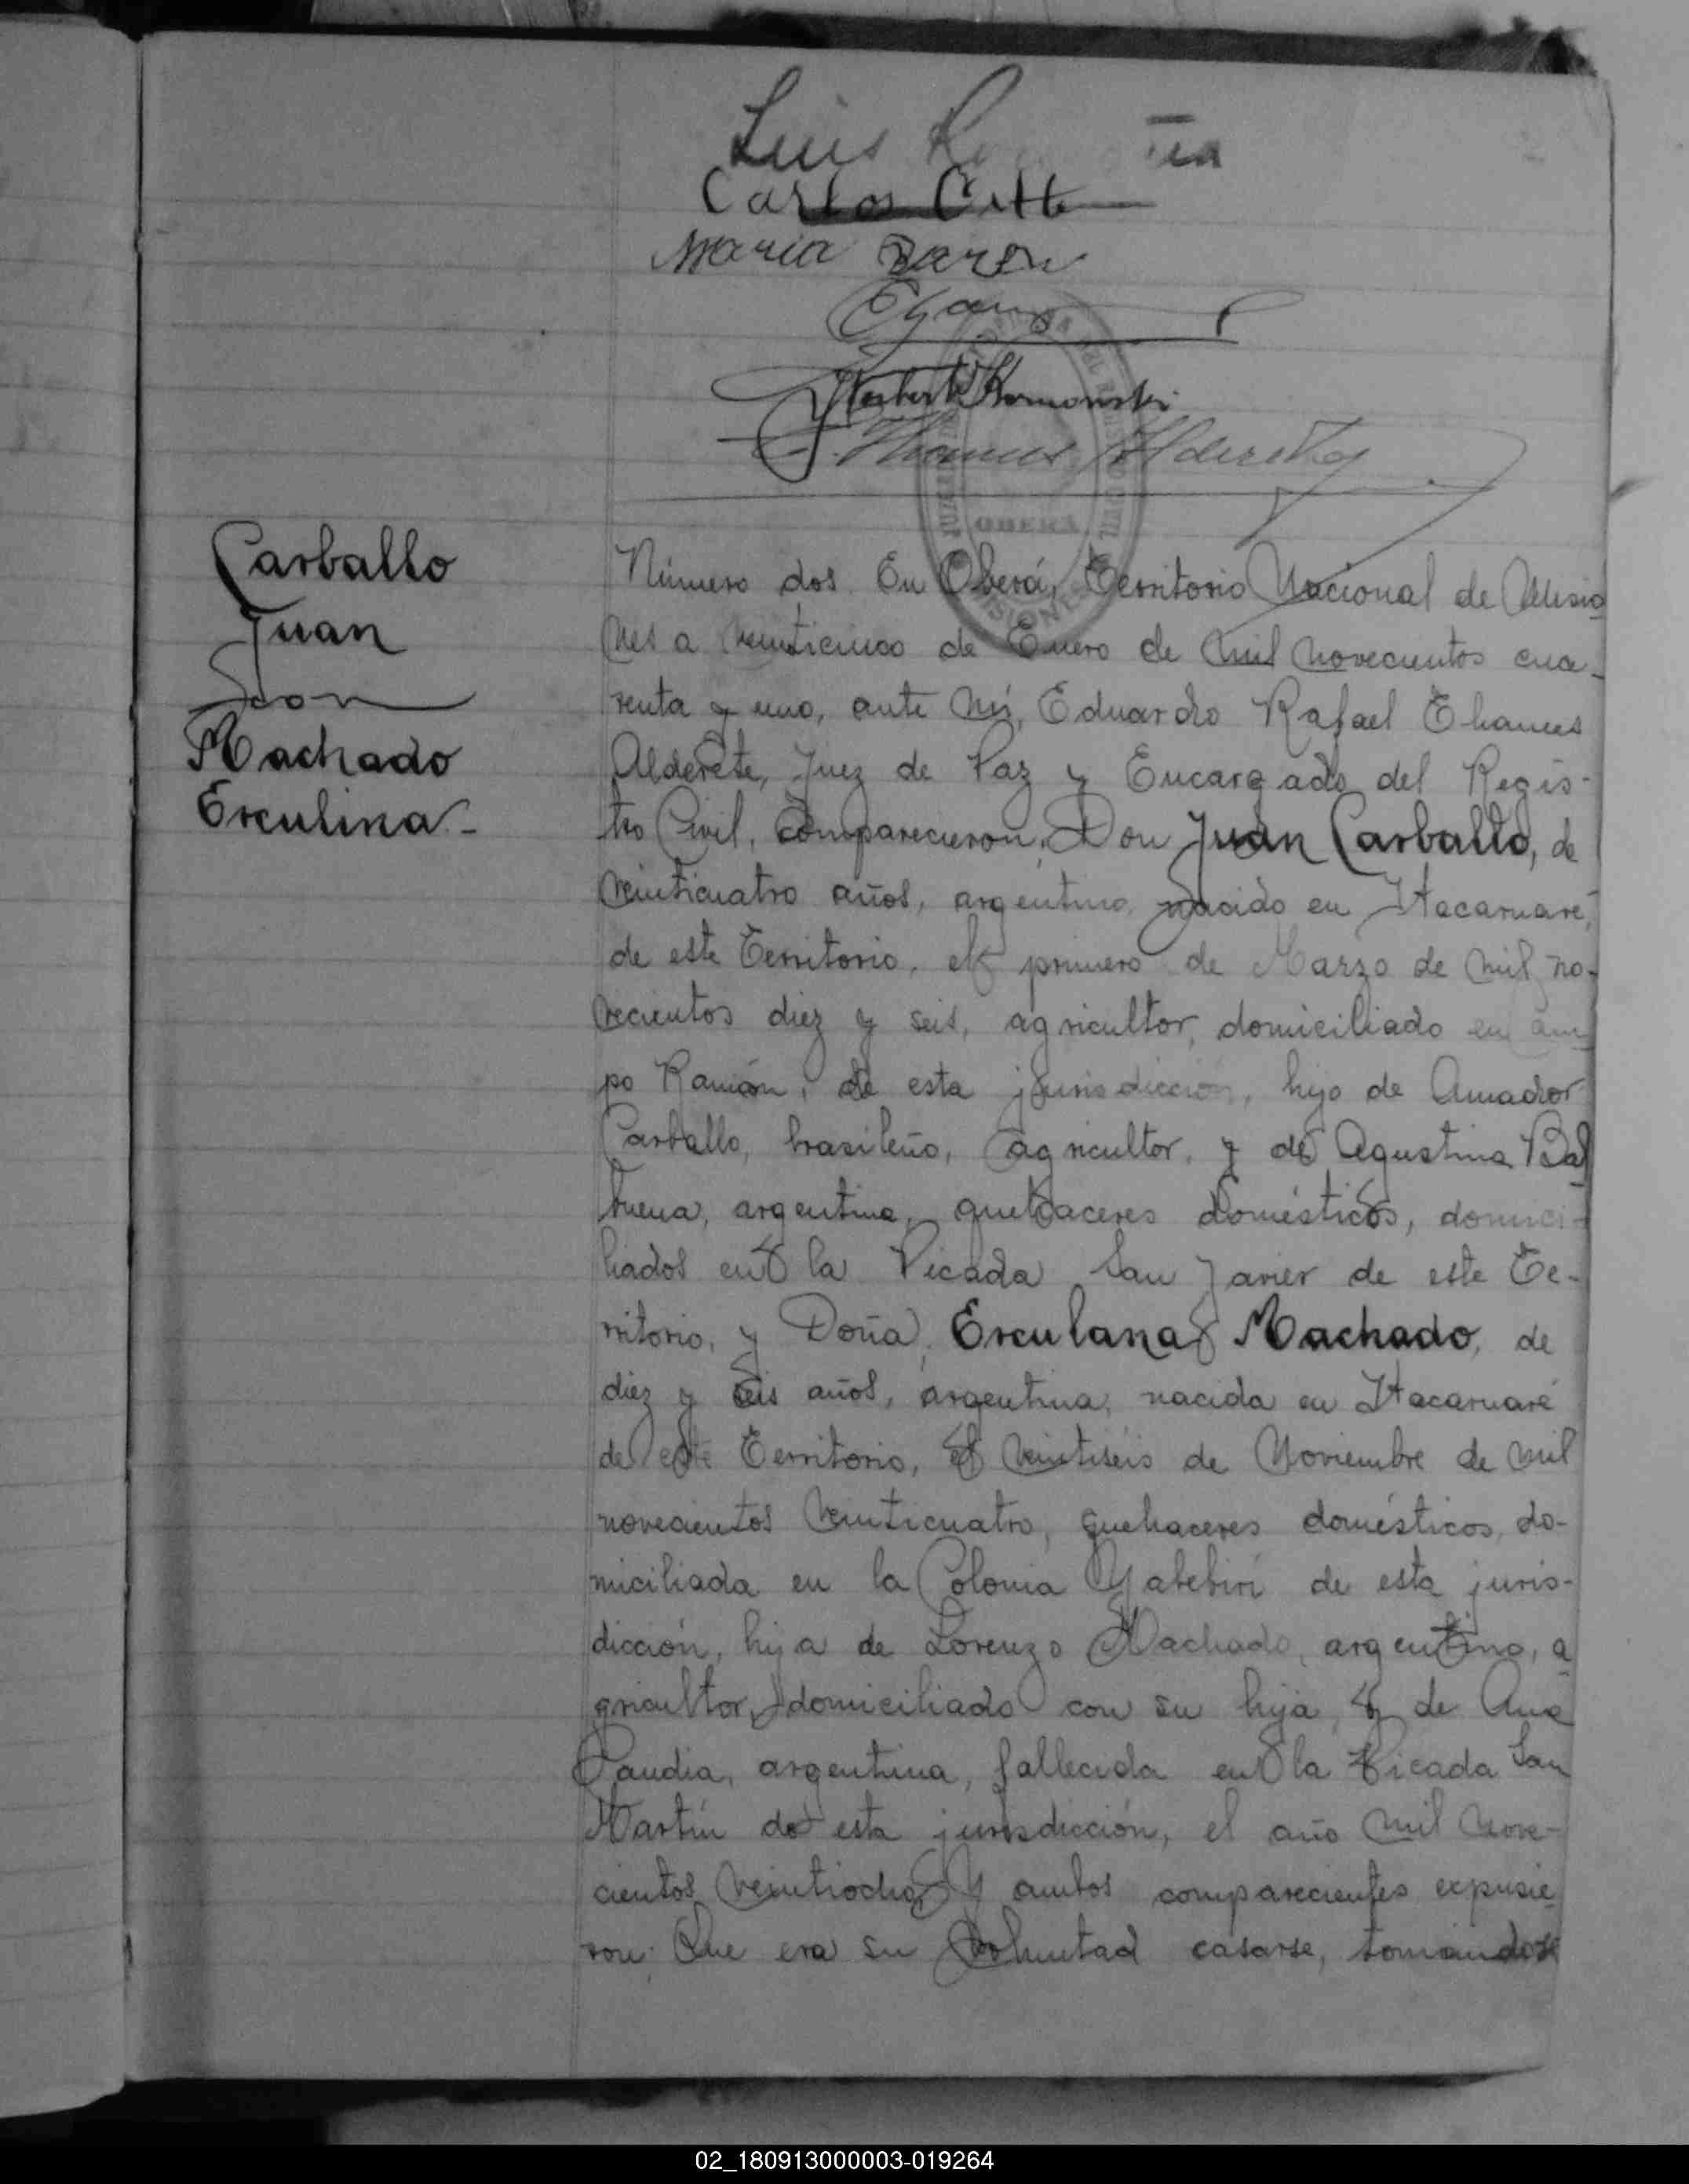 Luis
Carlos
Maria
OBERÁ
MISIONES
Carballo
Juan
con
Machado
Erculina.-
Número dos. En Oberá, Territorio Nacional de Misio
nes a veinticinco de Enero de mil novecientos cua-
renta y uno, ante mí, Eduardo Rafael Thames
Alderete, Juez de Paz y Encargado del Regis-
tro Civil, comparecieron, Don Juan Carballo, de
veinticuatro años, argentino, nacido en Itacaruaré,
de este Territorio, el primero de Marzo de mil no-
vecientos diez y seis, agricultor, domiciliado en Cam_
po Ramón, de esta jurisdicción, hijo de Amador
Carballo, brasileño, agricultor, y de Agustina Bal
buena, argentina, quehaceres domésticos, domici-
liados en la Picada San Javier de este Te-
rritorio, y Doña, Erculana Machado, de
diez y seis años, argentina, nacida en Itacaruaré
de este Territorio, el veintiséis de Noviembre de mil
novecientos veinticuatro, quehaceres domésticos, do-
miciliada en la Colonia Yabebirí de esta juris-
dicción, hija de Lorenzo Machado, argentino, a
gricultor, domiciliado con su hija, y de Ana
Claudia, argentina, fallecida en la Picada San
Martín de esta jurisdicción, el año mil nove-
cientos veintiocho. Y ambos comparecientes expusie_
ron: Que era su voluntad casarse, tomándose
02_180913000003-019264